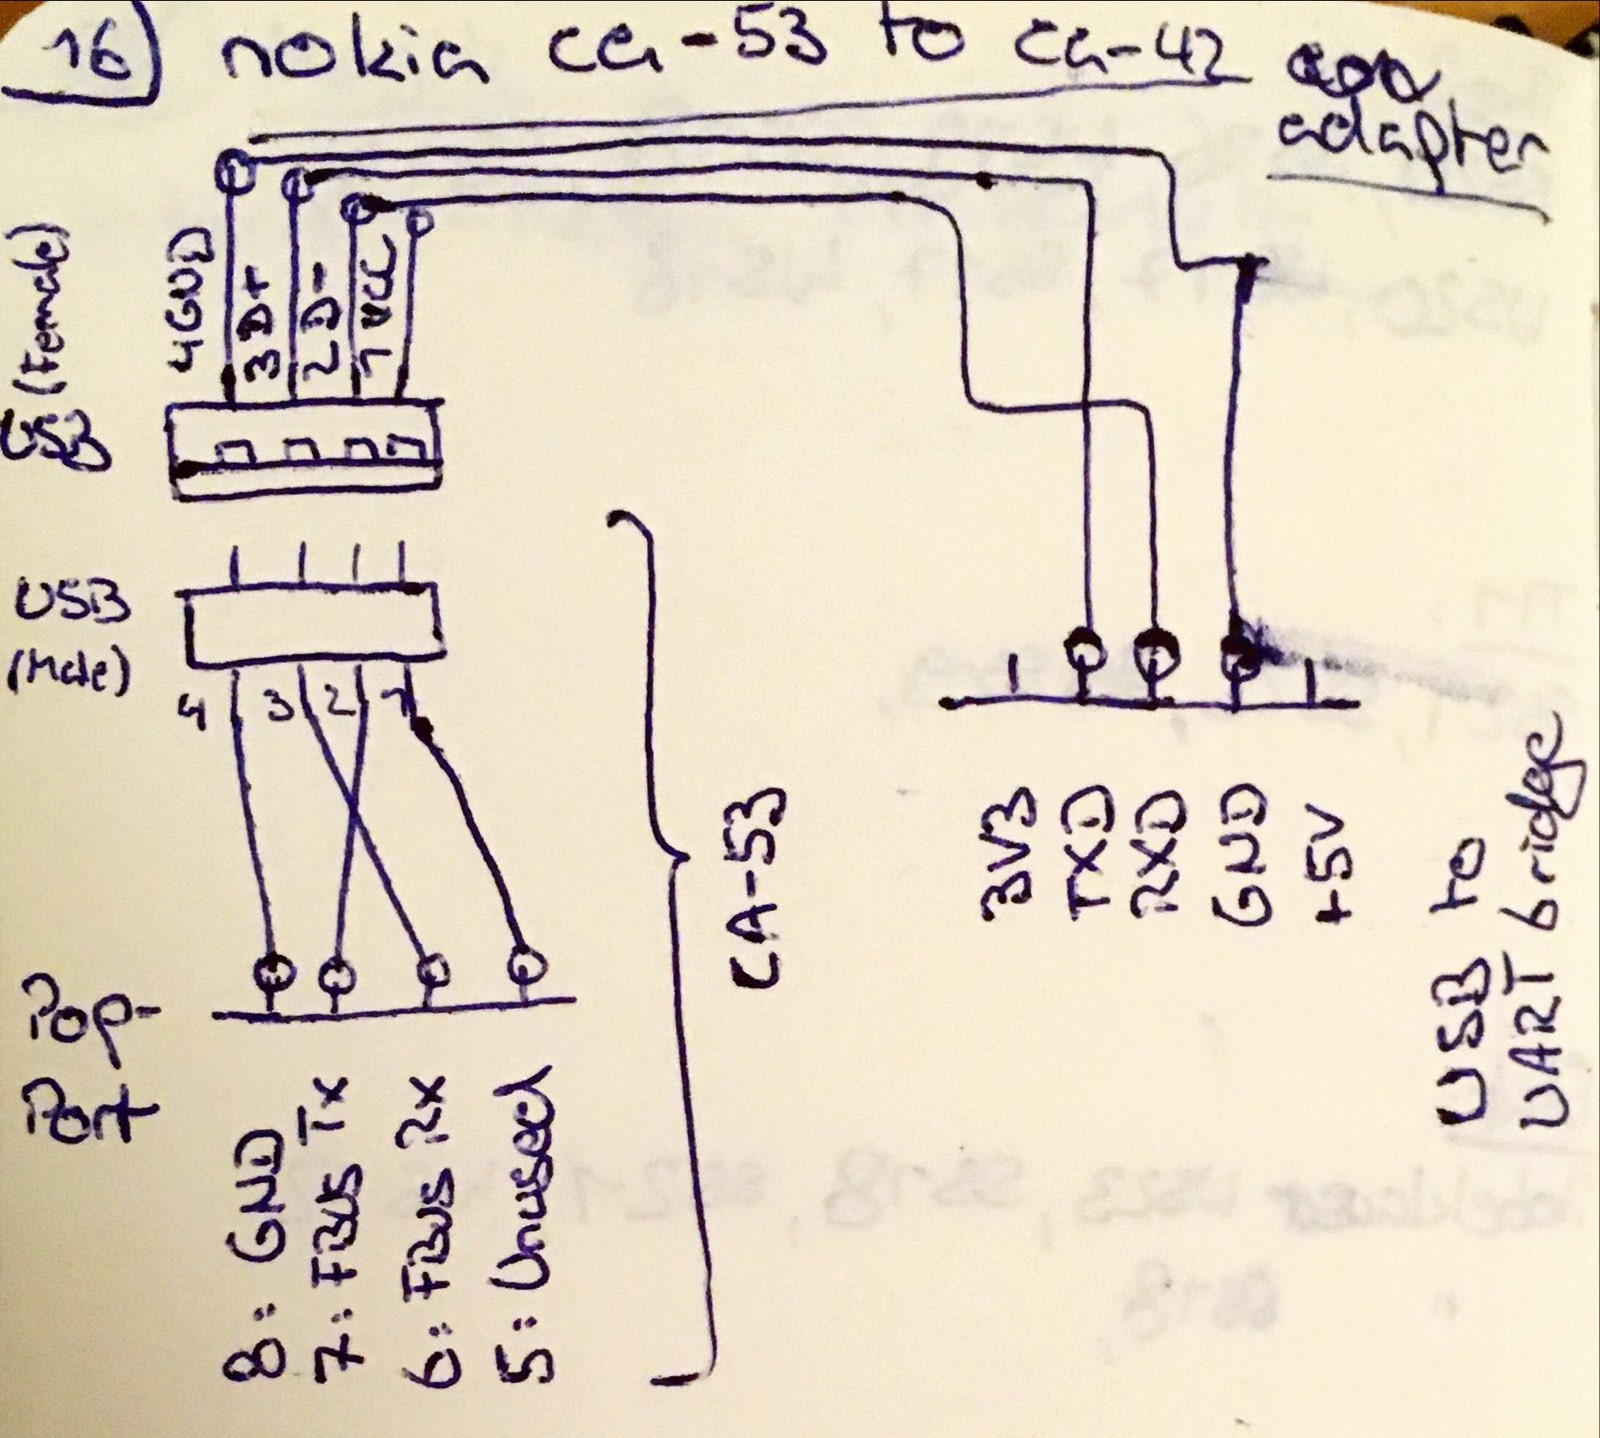 16) nokia ca-53 to ca-42
adapter
USB (Female)
4 GND
3 D+
2 D-
1 VCC
USB
(Male)
4 3 2 1
Pop-
Port
8: GND
7: FBUS Tx
6: FBUS Rx
5: Unused
CA-53
3V3
TXD
RXD
GND
+5V
USB to
UART bridge